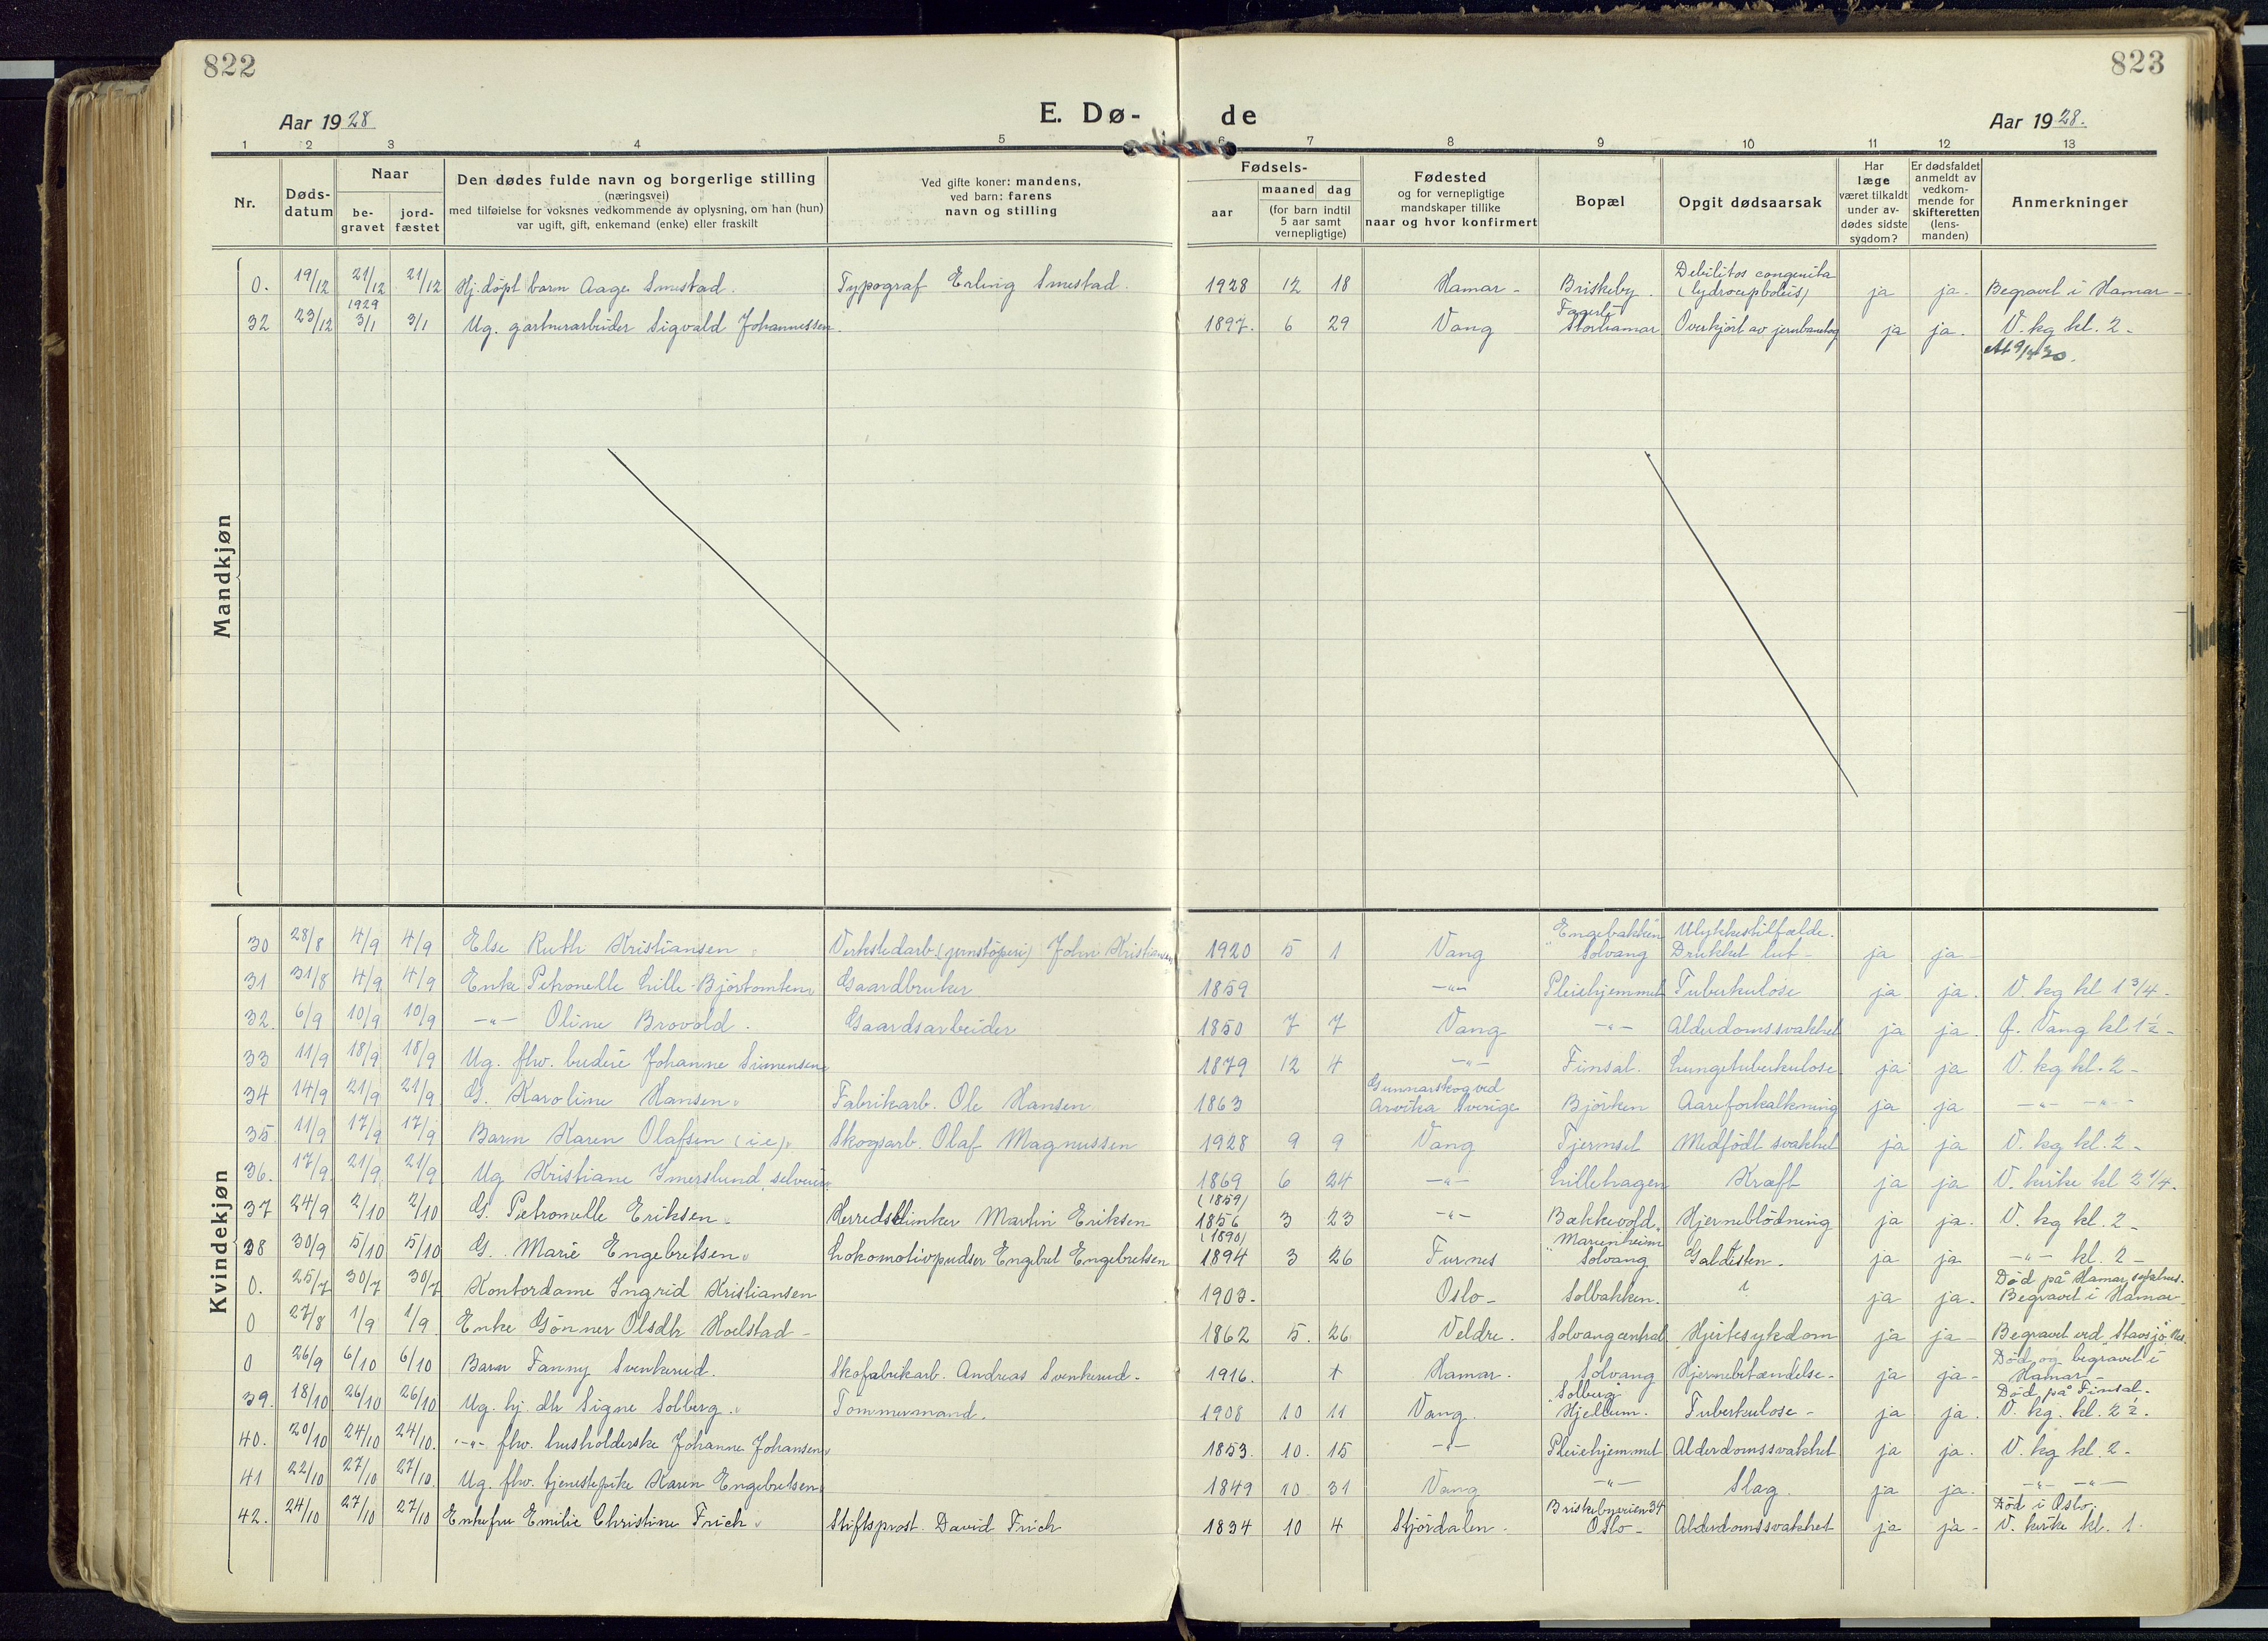 822
823
Aar 1928
E. Dø-
de
Aar 1928.
1 2 3 4 5 6 7 8 9 10 11 12 13
Nr.
Døds-datum
Naar
be-gravet
jord-fæstet
Den dødes fulde navn og borgerlige stilling
(næringsvei)
med tilføielse for voksnes vedkommende av oplysning, om han (hun)
var ugift, gift, enkemand (enke) eller fraskilt
Ved gifte koner: mandens,
ved barn: farens
navn og stilling
Fødsels-
aar
maaned dag
(for barn indtil
5 aar samt
vernepligtige)
Fødested
og for vernepligtige
mandskaper tillike
naar og hvor konfirmert
Bopæl
Opgit dødsaarsak
Har
læge
været tilkaldt
under av-
dødes sidste
sygdom?
Er dødsfaldet
anmeldt av
vedkom-
mende for
skifteretten
(lens-
manden)
Anmerkninger
Mandkjøn
0. 19/12 21/12 21/12 Hj.døpt barn Aage Smestad. Typograf Erling Smestad. 1928 12 18 Hamar - Briskeby. Debilitas congenita ja ja - Begravet i Hamar -
32 23/12 1929 3/1 3/1 Ug. gartnerarbeider Sigvald Johannessen. 1897. 6 29 Vang Storhamar Overkjørt av jernbanetog ja ja. V. kg kl. 2 -
Kvindekjøn
30 28/8 4/9 4/9 Else Ruth Kristiansen Verkstedarb. (jernstøperi) John Kristiansen 1920 5 1 Vang Engebakken Solvang Ulykkestilfælde. Drukket lut - ja ja -
31 31/8 4/9 4/9 Enke Petronelle Lille-Bjørtomten Gaardbruker 1859 -"- Pleiehjemmet Tuberkulose ja ja. V. kg kl 1 3/4 -
32. 6/9 10/9 10/9 -"- Oline Brovold. Gaardsarbeider 1850 7 7 Vang -"- Alderdomssvakhet ja ja. Ø. Vang kl 1 1/2 -
33 11/9 18/9 18/9 Ug. fhv. budeie Johanne Simensen 1879 12 4 -"- Finsal. Lungetuberkulose ja ja V. kg kl. 2 -
34 14/9 21/9 21/9 G. Karoline Hansen. Fabrikarb. Ole Hansen 1863 Gunnarskog ved Arvika Sverige Bjørken Aareforkalkning ja ja -"- -"-
35. 11/9 17/9 17/9 Barn Karen Olafsen (i.e.). Skogsarb. Olaf Magnussen 1928 9 9 Vang Tjernsel Medfødt svakhet ja ja V. kg kl. 2 -
36. 17/9 21/9 21/9 Ug Kristiane Imerslund, selveier. 1869 6 24 -"- Lillehagen Kræft ja ja V. kirke kl 2 1/4.
37 24/9 2/10 2/10 G. Petronelle Eriksen. Martin Eriksen (1859) 1856 3 23 -"- Bækkevold. Hjerneblødning ja ja. V. kg kl. 2 -
38 30/9 5/10 5/10 G. Marie Engebretsen. Lokomotivpudser Engebret Engebretsen (1890) 1894 3 26 Furnes Marienheim Solvang Galdesten. ja ja -"- kl. 2 -
0. 25/7 30/7 30/7 Kontordame Ingrid Kristiansen 1903. Oslo - Solbakken. ? ja ja. Død på Hamar sykehus. Begravet i Hamar -
0 27/8 1/9 1/9 Enke Gønner Olsdtr Hoelstad - 1862 5. 26 Veldre. Solvang central Hjertesykdom ja ja - Begravet ved Stavsjø Nes.
0 26/9 6/10 6/10 Barn Fanny Svenkerud. Skofabrikarb. Andreas Svenkerud. 1916. Hamar. Solvang Hjernebetændelse - ja ja - Død og begravet i Hamar -
39. 18/10 26/10 26/10 Ug. hj. dtr Signe Solberg. Tømmermand. 1908 10 11 Vang. Solberg Hjellum. Tuberkulose - ja ja. Død på Finsal. V. kg. kl. 2 1/2.
40. 20/10 24/10 24/10. -"- fhv. husholderske Johanne Johansen 1853. 10. 15 -"- Pleiehjemmet Alderdomssvakhet ja ja. V. kg kl. 2 -
41 22/10 27/10 27/10. Ug. fhv. tjenestepike Karen Engebretsen 1849 10 31 Vang -"- Slag. ja ja. -"- -"-
42. 24/10 27/10 27/10 Enkefru Emilie Christine Frich. Stiftsprost David Frich 1834 10 4 Stjørdalen. Briskebyveien 34 Oslo - Alderdomssvakhet ja ja - Død i Oslo. V. kirke kl. 1.